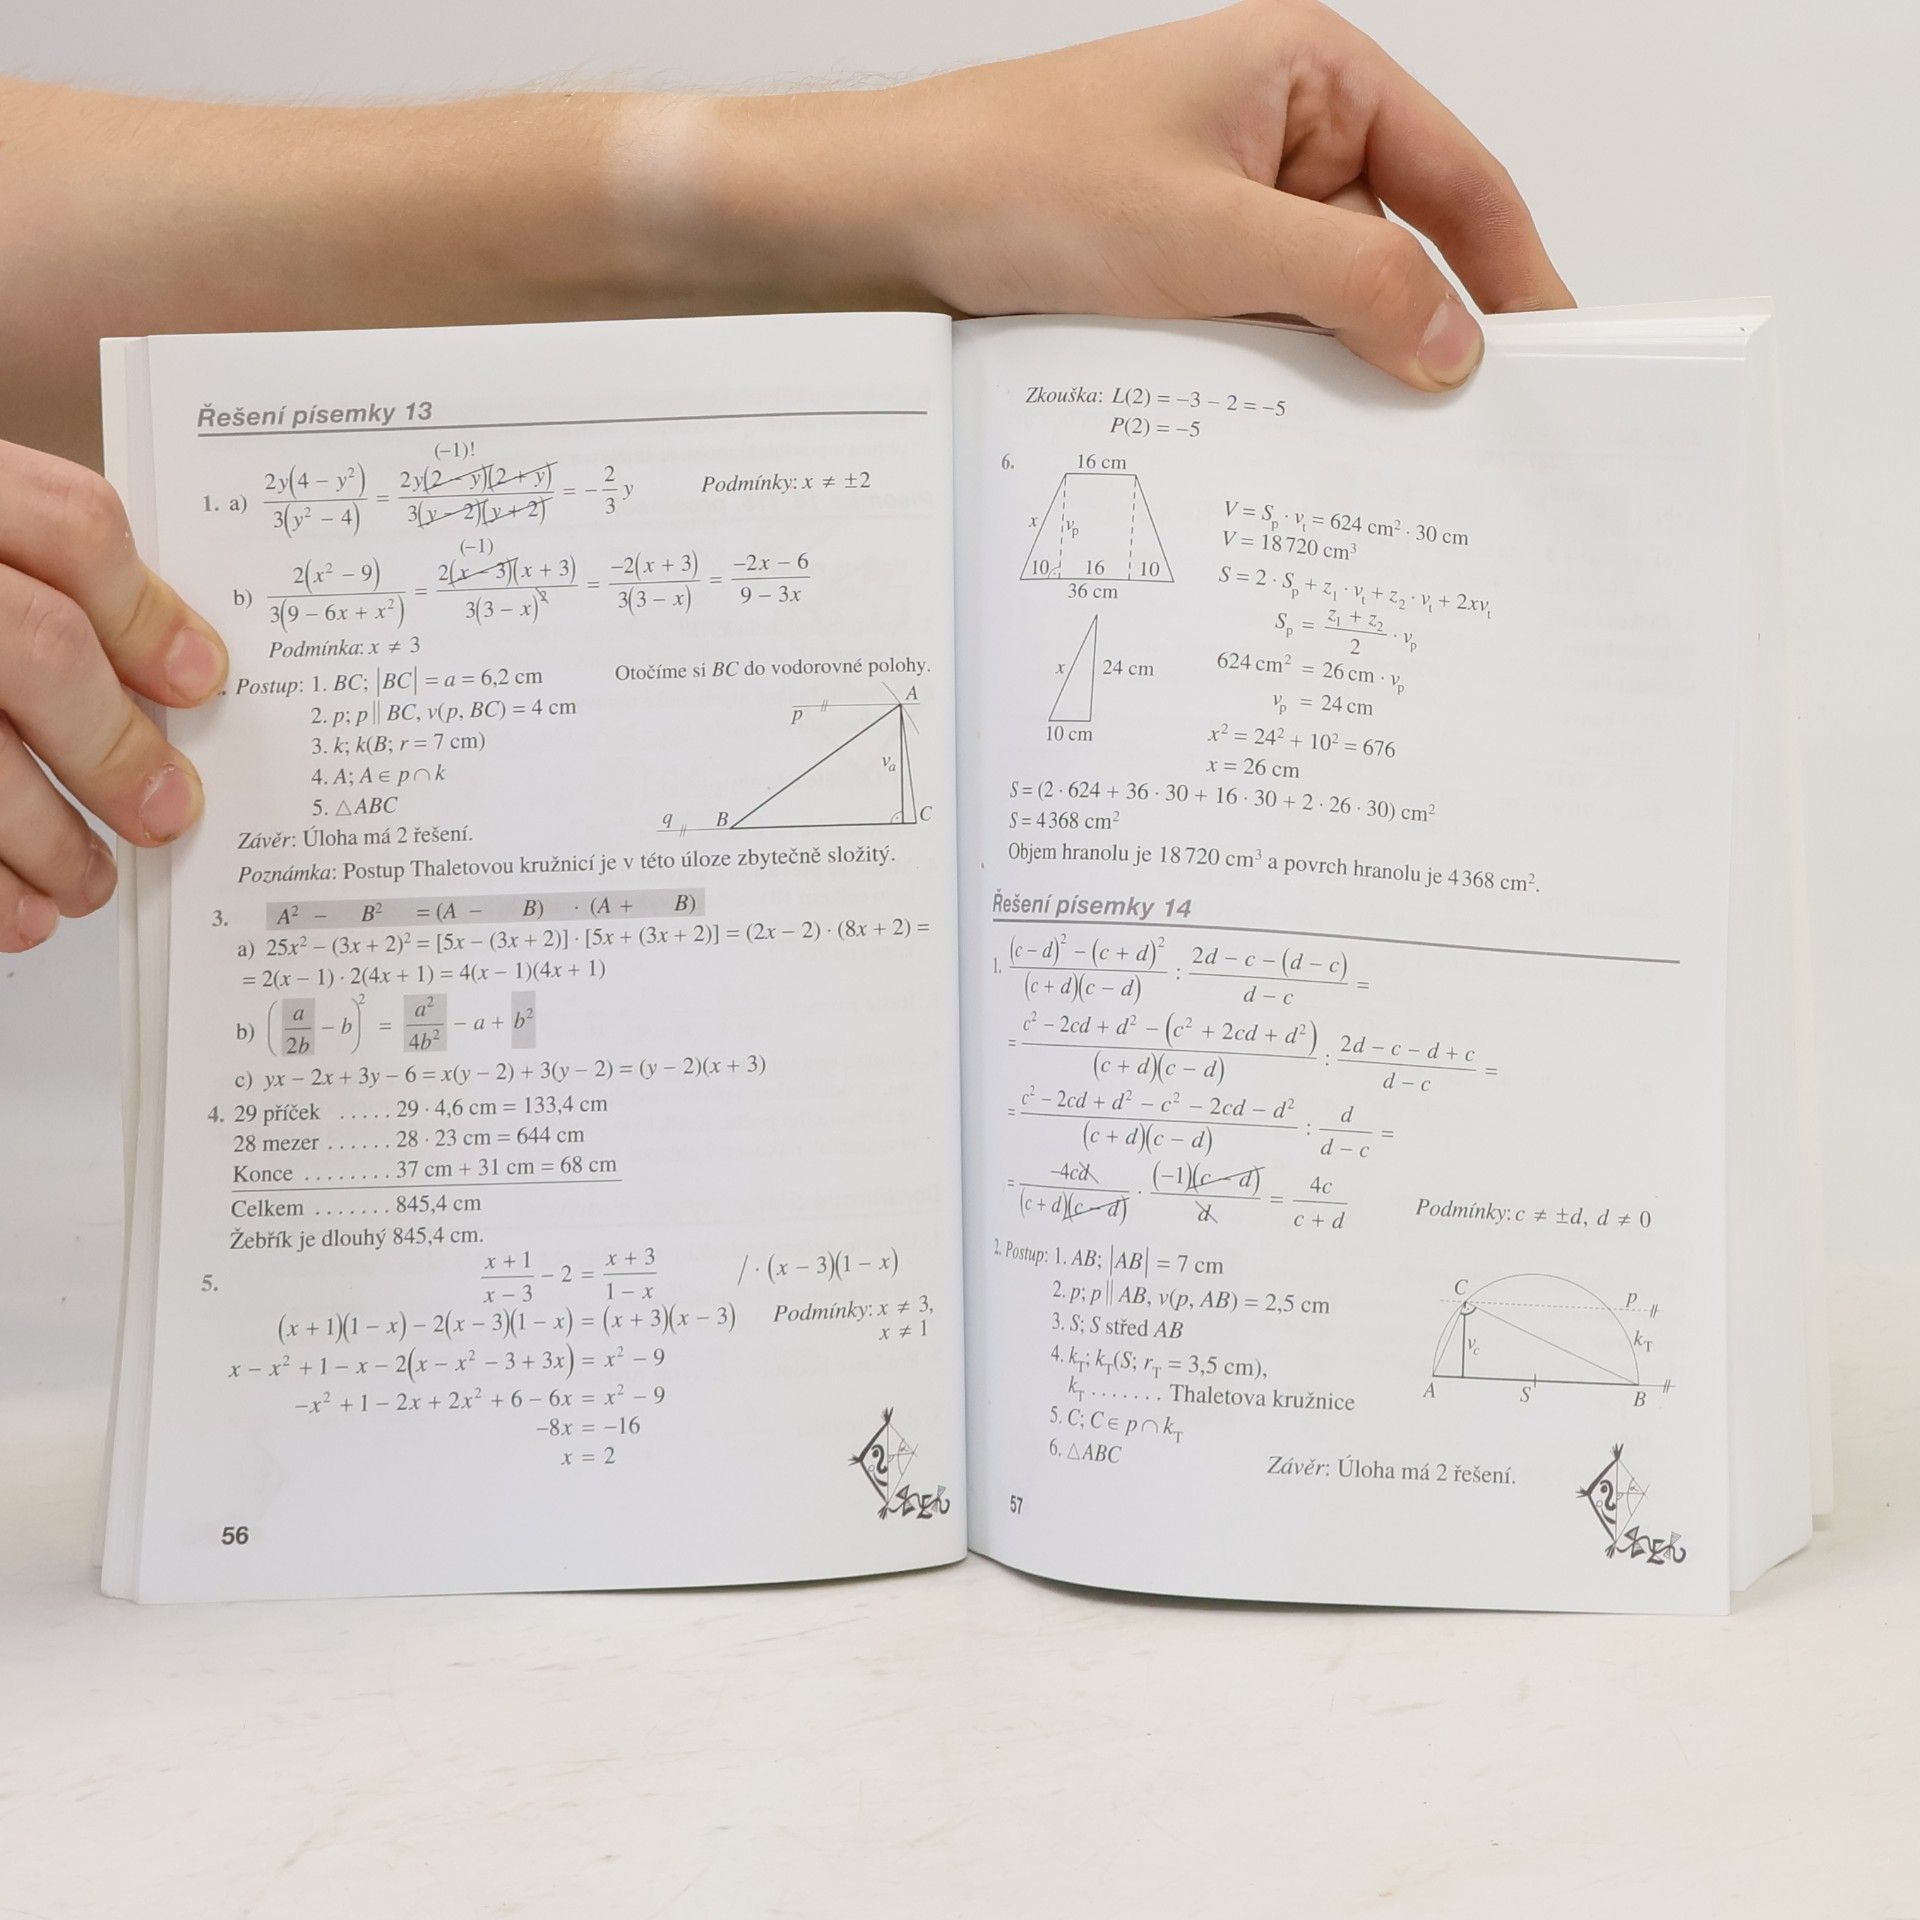 Řešení písemky 13
(−1)!
1. a) 2y(4 − y²) / 3(y² − 4) = 2y(2 − y)(2 + y) / 3(y − 2)(y + 2) = − 2/3 y Podmínky: x ≠ ±2
(−1)
b) 2(x² − 9) / 3(9 − 6x + x²) = 2(x − 3)(x + 3) / 3(3 − x)² = −2(x + 3) / 3(3 − x) = −2x − 6 / 9 − 3x
Podmínka: x ≠ 3
Postup: 1. BC; |BC| = a = 6,2 cm Otočíme si BC do vodorovné polohy.
2. p; p || BC, v(p, BC) = 4 cm
3. k; k(B; r = 7 cm)
4. A; A ∈ p ∩ k
5. △ABC
p A
v_a
q B C
Závěr: Úloha má 2 řešení.
Poznámka: Postup Thaletovou kružnicí je v této úloze zbytečně složitý.
3. A² − B² = (A − B) · (A + B)
a) 25x² − (3x + 2)² = [5x − (3x + 2)] · [5x + (3x + 2)] = (2x − 2) · (8x + 2) =
= 2(x − 1) · 2(4x + 1) = 4(x − 1)(4x + 1)
b) (a/2b − b)² = a²/4b² − a + b²
c) yx − 2x + 3y − 6 = x(y − 2) + 3(y − 2) = (y − 2)(x + 3)
4. 29 příček ..... 29 · 4,6 cm = 133,4 cm
28 mezer ...... 28 · 23 cm = 644 cm
Konce ........ 37 cm + 31 cm = 68 cm
Celkem ....... 845,4 cm
Žebřík je dlouhý 845,4 cm.
5. x + 1 / x − 3 − 2 = x + 3 / 1 − x / · (x − 3)(1 − x)
(x + 1)(1 − x) − 2(x − 3)(1 − x) = (x + 3)(x − 3) Podmínky: x ≠ 3,
x ≠ 1
x − x² + 1 − x − 2(x − x² − 3 + 3x) = x² − 9
−x² + 1 − 2x + 2x² + 6 − 6x = x² − 9
−8x = −16
x = 2
56
Zkouška: L(2) = −3 − 2 = −5
P(2) = −5
6. 16 cm
x v_p
10 16 10
36 cm
x 24 cm
10 cm
V = S_p · v_t = 624 cm² · 30 cm
V = 18 720 cm³
S = 2 · S_p + z₁ · v_t + z₂ · v_t + 2xv_t
S_p = z₁ + z₂ / 2 · v_p
624 cm² = 26 cm · v_p
v_p = 24 cm
x² = 24² + 10² = 676
x = 26 cm
S = (2 · 624 + 36 · 30 + 16 · 30 + 2 · 26 · 30) cm²
S = 4 368 cm²
Objem hranolu je 18 720 cm³ a povrch hranolu je 4 368 cm².
Řešení písemky 14
1. (c − d)² − (c + d)² / (c + d)(c − d) : 2d − c − (d − c) / d − c =
= c² − 2cd + d² − (c² + 2cd + d²) / (c + d)(c − d) : 2d − c − d + c / d − c =
= c² − 2cd + d² − c² − 2cd − d² / (c + d)(c − d) : d / d − c =
= −4cd / (c + d)(c − d) · (−1)(c − d) / d = 4c / c + d Podmínky: c ≠ ±d, d ≠ 0
2. Postup: 1. AB; |AB| = 7 cm
2. p; p || AB, v(p, AB) = 2,5 cm
3. S; S střed AB
4. k_T; k_T(S; r_T = 3,5 cm),
k_T ....... Thaletova kružnice
5. C; C ∈ p ∩ k_T
6. △ABC
C p
k_T
v_c
A S B
Závěr: Úloha má 2 řešení.
57